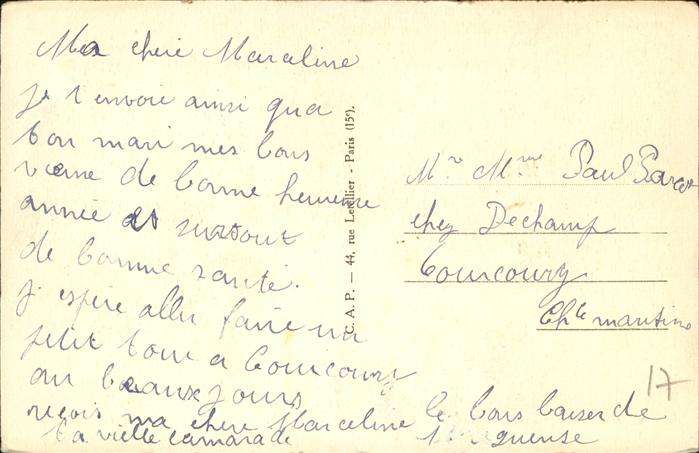 Ma chere Marceline
je t envoie ainsi qua
ton mari mes bons
vœue de bonne heureuse
année et surtout
de bonne santé.
j espère aller faire un
petit tour a Courcoury
au beaux jours
reçois ma chere Marceline le bons baiser de
ta vielle camarade
C.A.P. — 44, rue Letellier - Paris (15e).
Mr Mme Paul
chez Dechamp
Courcoury
Chte maritime
17